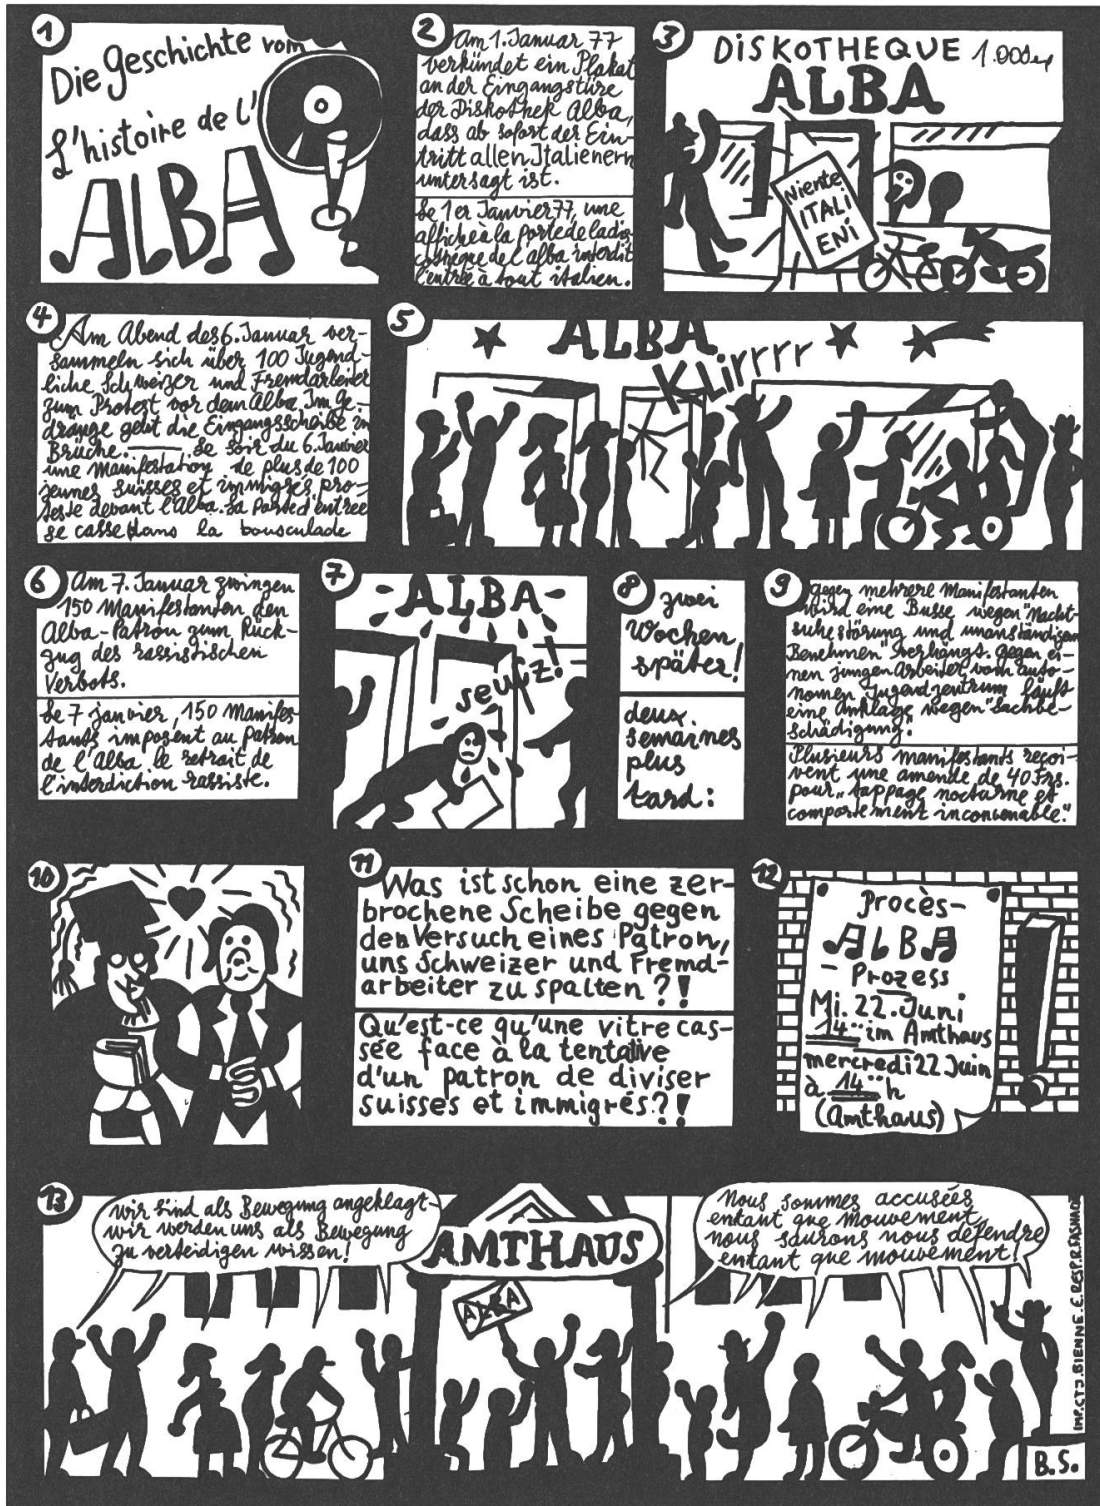 1
Die Geschichte vom
L'histoire de l'
ALBA
2
Am 1. Januar 77
verkündet ein Plakat
an der Eingangstüre
der Diskothek Alba,
dass ab sofort der Ein-
tritt allen Italienern
untersagt ist.
Le 1er Janvier 77, une
affiche à la porte de la dis-
cothèque de l'alba interdit
l'entrée à tout italien.
3
DISKOTHEQUE
ALBA
Niente
ITALI
ENI
4
Am Abend des 6. Januar ver-
sammeln sich über 100 Jugend-
liche Schweizer und Fremdarbeiter
zum Protest vor dem Alba. Im Ge-
dränge geht die Eingangsscheibe in
Brüche. — Le soir du 6. Janvier
une Manifestation de plus de 100
jeunes suisses et immigrés pro-
teste devant l'Alba. La porte d'entrée
se casse dans la bousculade
5
ALBA
KLirrrr
6
Am 7. Januar zwingen
150 Manifestanten den
Alba-Patron zum Rück-
zug des rassistischen
Verbots.
Le 7 janvier, 150 Manifes
tants imposent au Patron
de l'Alba le retrait de
l'interdiction rassiste.
7
ALBA
seufz!
8
zwei
Wochen
später!
deux
semaines
plus
tard:
9
gegen mehrere Manifestanten
wird eine Busse wegen "Nacht-
ruhestörung und unanständigem
Benehmen" verhängt. gegen ei-
nen jungen Arbeiter vom auto-
nomen Jugendzentrum läuft
eine Anklage wegen "Sachbe-
schädigung".
Plusieurs manifestants reçoi-
vent une amende de 40 Frs.
pour "tappage nocturne et
comportement inconvenable."
10
11
Was ist schon eine zer-
brochene Scheibe gegen
den Versuch eines Patron,
uns Schweizer und Fremd-
arbeiter zu spalten?!
Qu'est-ce qu'une vitre cas-
sée face à la tentative
d'un patron de diviser
suisses et immigrés?!
12
Procès-
ALBA
- Prozess
Mi. 22. Juni
14°° im Amthaus
mercredi 22 Juin
à 14°° h
(Amthaus)
!
13
wir sind als Bewegung angeklagt-
wir werden uns als Bewegung
zu verteidigen wissen!
AMTHAUS
ALBA
Nous sommes accusées
entant que Mouvement,
nous saurons nous défendre
entant que mouvement!
IMP. CTJ. BIENNE. E. RESP.
B.S.